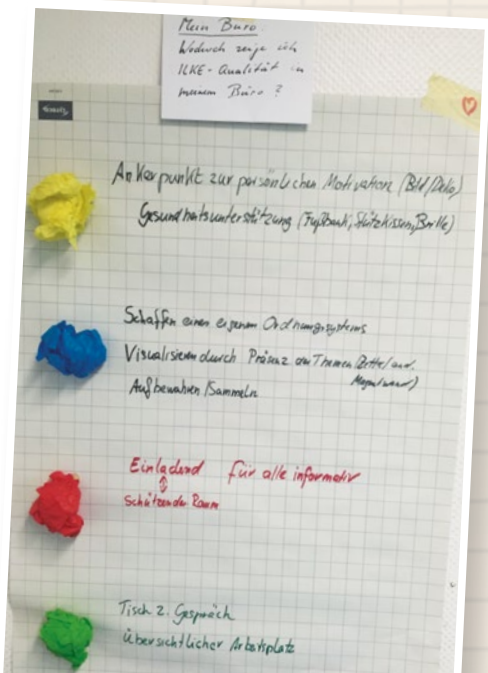 Mein Büro.
Wodurch zeige ich
ILKE-Qualität in
meinem Büro?
Ankerpunkt zur persönlichen Motivation (Bild/Deko)
Gesundheitsunterstützung (Fußbank, Stützkissen, Brille)
Schaffen eines eigenen Ordnungssystems
Visualisieren durch Präsenz der Themen (Zettel an d.
Magnetwand)
Aufbewahren/Sammeln
Einladend für alle informativ
↕
Schützender Raum
Tisch z. Gespräch
Übersichtlicher Arbeitsplatz